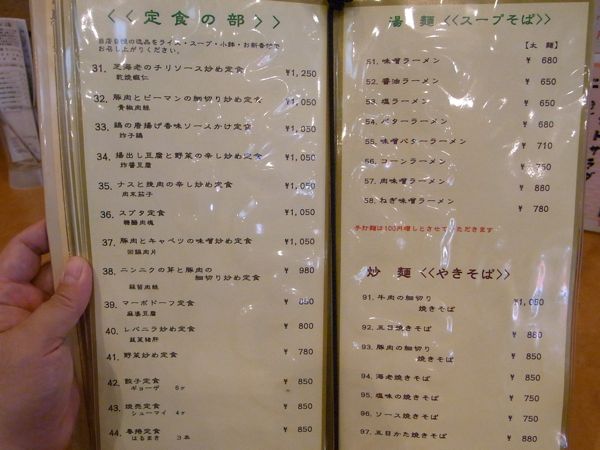 <<定食の部>>
当店自慢の逸品をライス・スープ・小鉢・お新香付で
お召し上がりください。
31. 芝海老のチリソース炒め定食 ¥1,250
乾焼蝦仁
32. 豚肉とピーマンの細切り炒め定食 ¥1,050
青椒肉絲
33. 鶏の唐揚げ香味ソースかけ定食 ¥1,050
炸子鶏
34. 揚出し豆腐と野菜の辛し炒め定食 ¥1,050
炸醤豆腐
35. ナスと挽肉の辛し炒め定食 ¥1,050
肉末茄子
36. スブタ定食 ¥1,050
糖醋肉塊
37. 豚肉とキャベツの味噌炒め定食 ¥1,050
回鍋肉片
38. ニンニクの芽と豚肉の
細切り炒め定食 ¥ 980
蒜苗肉絲
39. マーボドーフ定食 ¥ 850
麻婆豆腐
40. レバニラ炒め定食 ¥ 800
韮菜猪肝
41. 野菜炒め定食 ¥ 780
42. 餃子定食 ¥ 850
ギョーザ 6ヶ
43. 焼売定食 ¥ 850
シューマイ 4ヶ
44. 春捲定食 ¥ 850
はるまき 3本
湯 麺 <<スープそば>>
【太 麺】
51. 味噌ラーメン ¥ 680
52. 醤油ラーメン ¥ 650
53. 塩ラーメン ¥ 650
54. バターラーメン ¥ 680
55. 味噌バターラーメン ¥ 710
56. コーンラーメン ¥ 750
57. 肉味噌ラーメン ¥ 880
58. ねぎ味噌ラーメン ¥ 780
手打麺は100円増しとさせていただきます
炒 麺 <<やきそば>>
91. 牛肉の細切り
焼きそば ¥1,050
92. 五目焼きそば ¥ 880
93. 豚肉の細切り
焼きそば ¥ 880
94. 海老焼きそば ¥ 850
95. 塩味の焼きそば ¥ 750
96. ソース焼きそば ¥ 750
97. 五目かた焼きそば ¥ 880